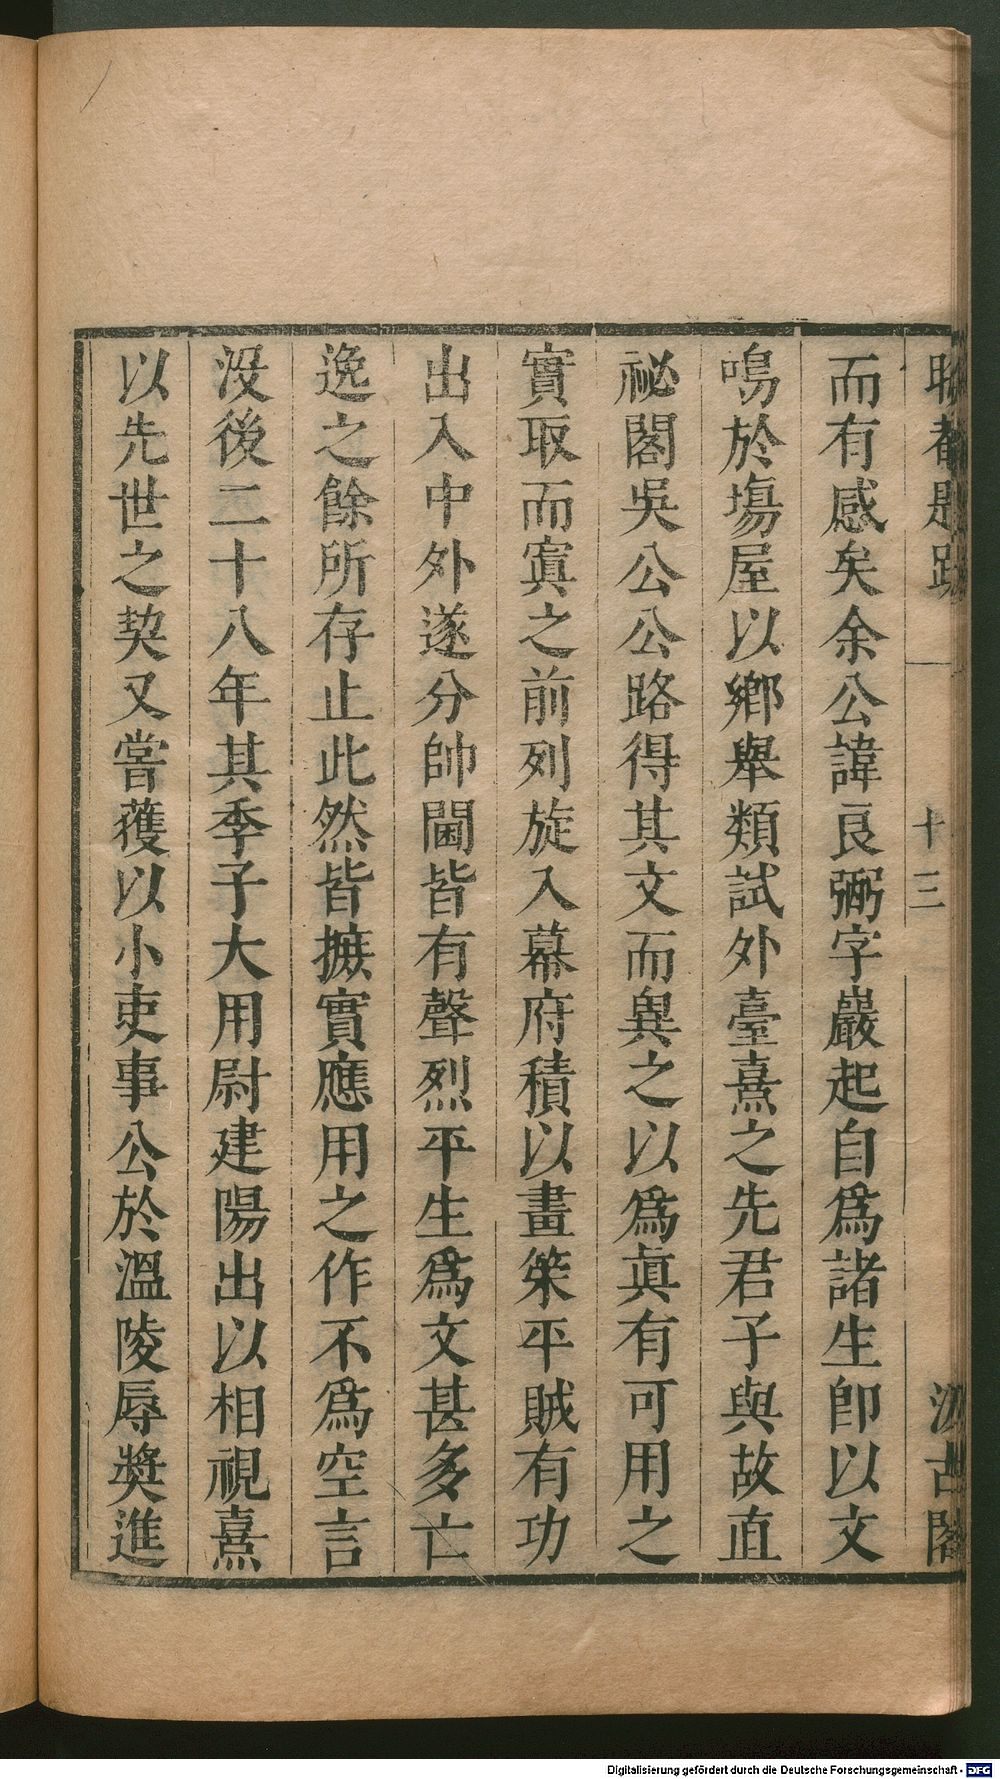 而有感矣余公諱良弼字巖起自爲諸生卽以文
鳴於塲屋以鄉舉類試外臺熹之先君子與故直
祕閣吳公公路得其文而異之以爲眞有可用之
實取而寘之前列旋入幕府積以畫筞平賊有功
出入中外遂分帥閫皆有聲烈平生爲文甚多亡
逸之餘所存止此然皆摭實應用之作不爲空言
没後二十八年其季子大用尉建陽出以相視熹
以先世之契又嘗獲以小吏事公於溫陵辱奬進
十三
汲古閣
Digitalisierung gefördert durch die Deutsche Forschungsgemeinschaft - DFG